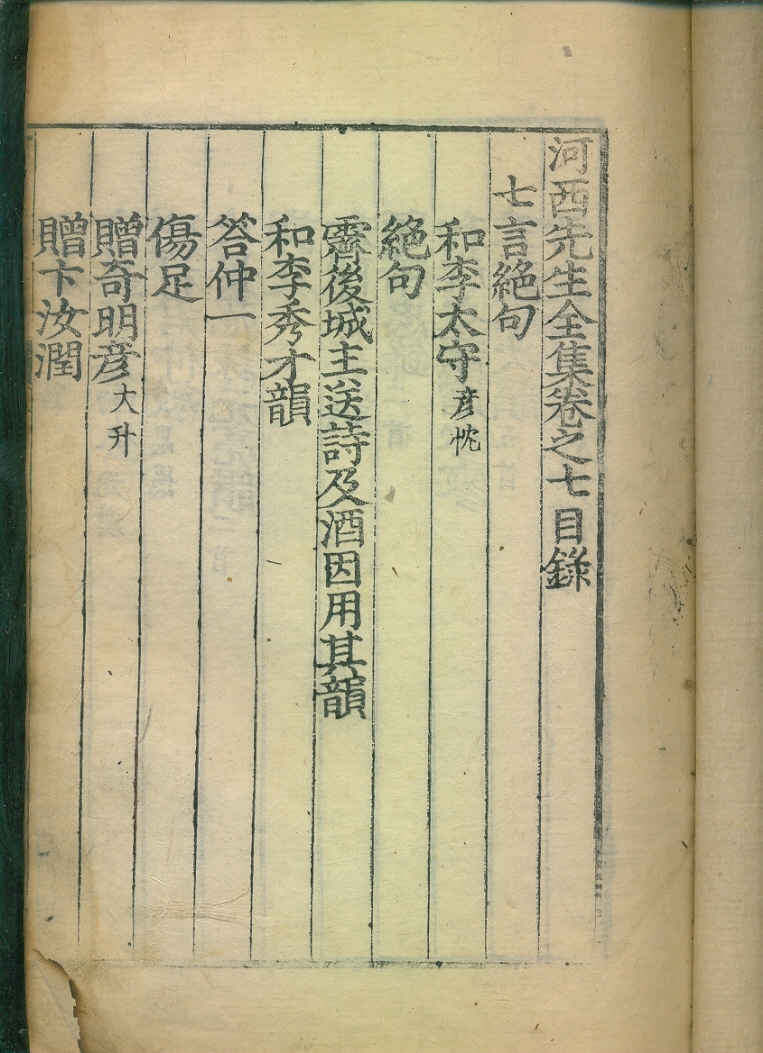 河西先生全集卷之七目錄
七言絕句
和李太守彦忱
絕句
霽後城主送詩及酒因用其韻
和李秀才韻
答仲一
傷足
贈奇明彦大升
贈卞汝潤